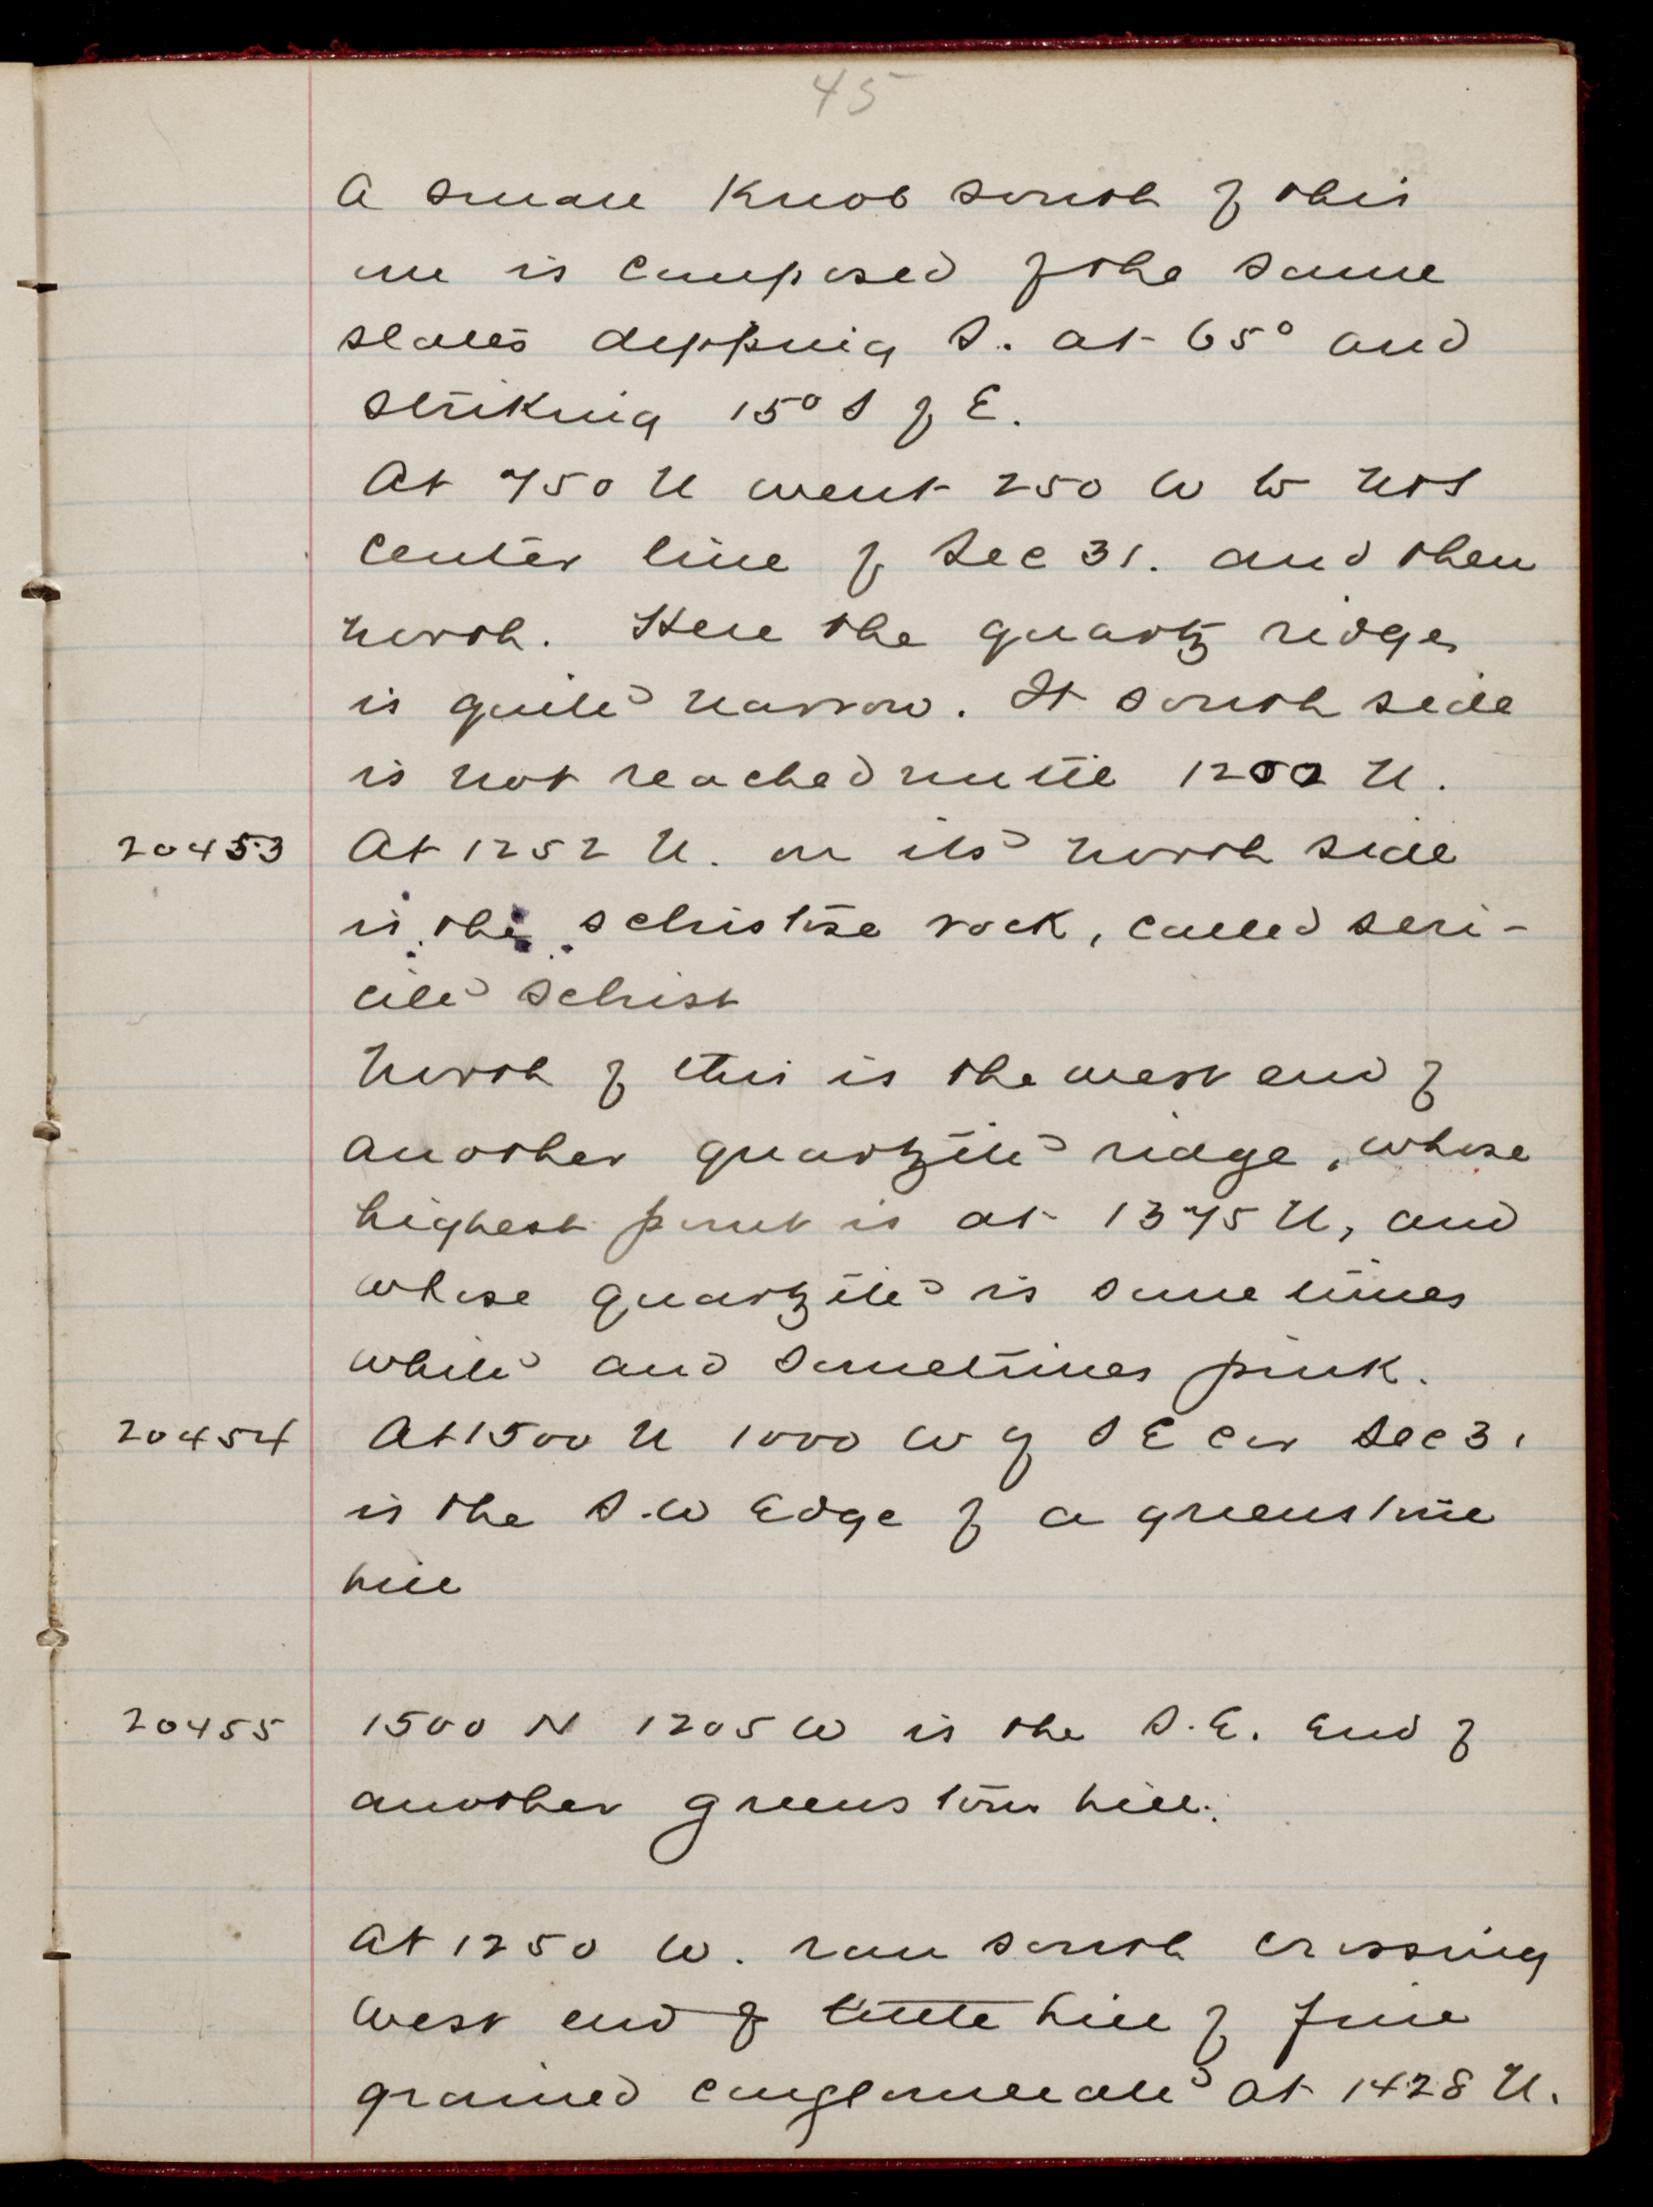 45
A small Knob south of this
one is composed of the same
slates dipping S. at 65° and
striking 15° S of E.
At 750 N went 250 W to N & S
center line of Sec 31. and then
north. Here the quartz ridge
is quite narrow. It south side
is not reached until 1202 N.
20453 At 1252 N. on its north side
is the schistose rock, called seri-
cite schist
North of this is the west end of
another quartzite ridge, whose
highest point is at 1375 N, and
whose quartzite is sometimes
white and sometimes pink.
20454 At 1500 N 1000 W of S E cor Sec 31
is the S.W Edge of a greenstone
hill
20455 1500 N 1205 W is the S.E. End of
another greenstone hill.
At 1250 W. ran south crossing
West end of little hill of fine
grained conglomerate at 1428 N.